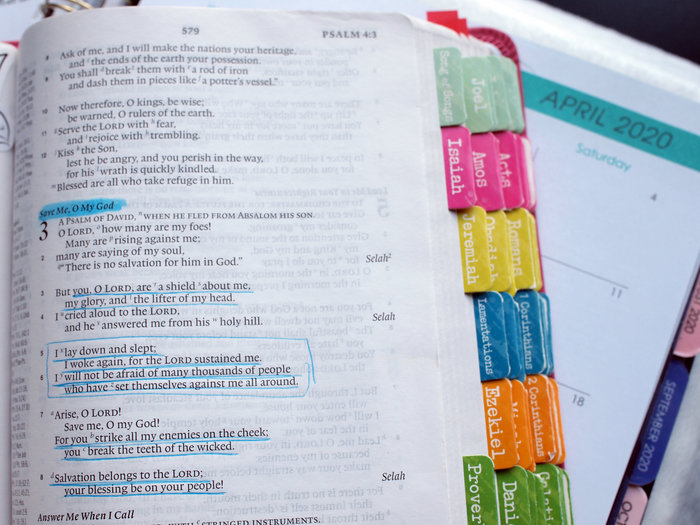 579
PSALM 4:3
Ask of me, and I will make the nations your heritage,
and the ends of the earth your possession.
9 You shall break them with a rod of iron
and dash them in pieces like a potter's vessel."
10 Now therefore, O kings, be wise;
be warned, O rulers of the earth.
11 Serve the LORD with fear,
and rejoice with trembling.
12 Kiss the Son,
lest he be angry, and you perish in the way,
for his wrath is quickly kindled.
Blessed are all who take refuge in him.
Save Me, O My God
3 A PSALM OF DAVID, WHEN HE FLED FROM ABSALOM HIS SON.
O LORD, how many are my foes!
Many are rising against me;
2 many are saying of my soul,
"There is no salvation for him in God." Selah
3 But you, O LORD, are a shield about me,
my glory, and the lifter of my head.
4 I cried aloud to the LORD,
and he answered me from his holy hill. Selah
5 I lay down and slept;
I woke again, for the LORD sustained me.
6 I will not be afraid of many thousands of people
who have set themselves against me all around.
7 Arise, O LORD!
Save me, O my God!
For you strike all my enemies on the cheek;
you break the teeth of the wicked.
8 Salvation belongs to the LORD;
your blessing be on your people! Selah
Answer Me When I Call
STRINGED INSTRUMENTS.
Song of Songs
Joel
Isaiah
Amos
Acts
Jeremiah
Obadiah
Romans
Lamentations
1 Corinthians
Ezekiel
2 Corinthians
APRIL 2020
Saturday
4
11
18
2020
SEPTEMBER 2020
2020